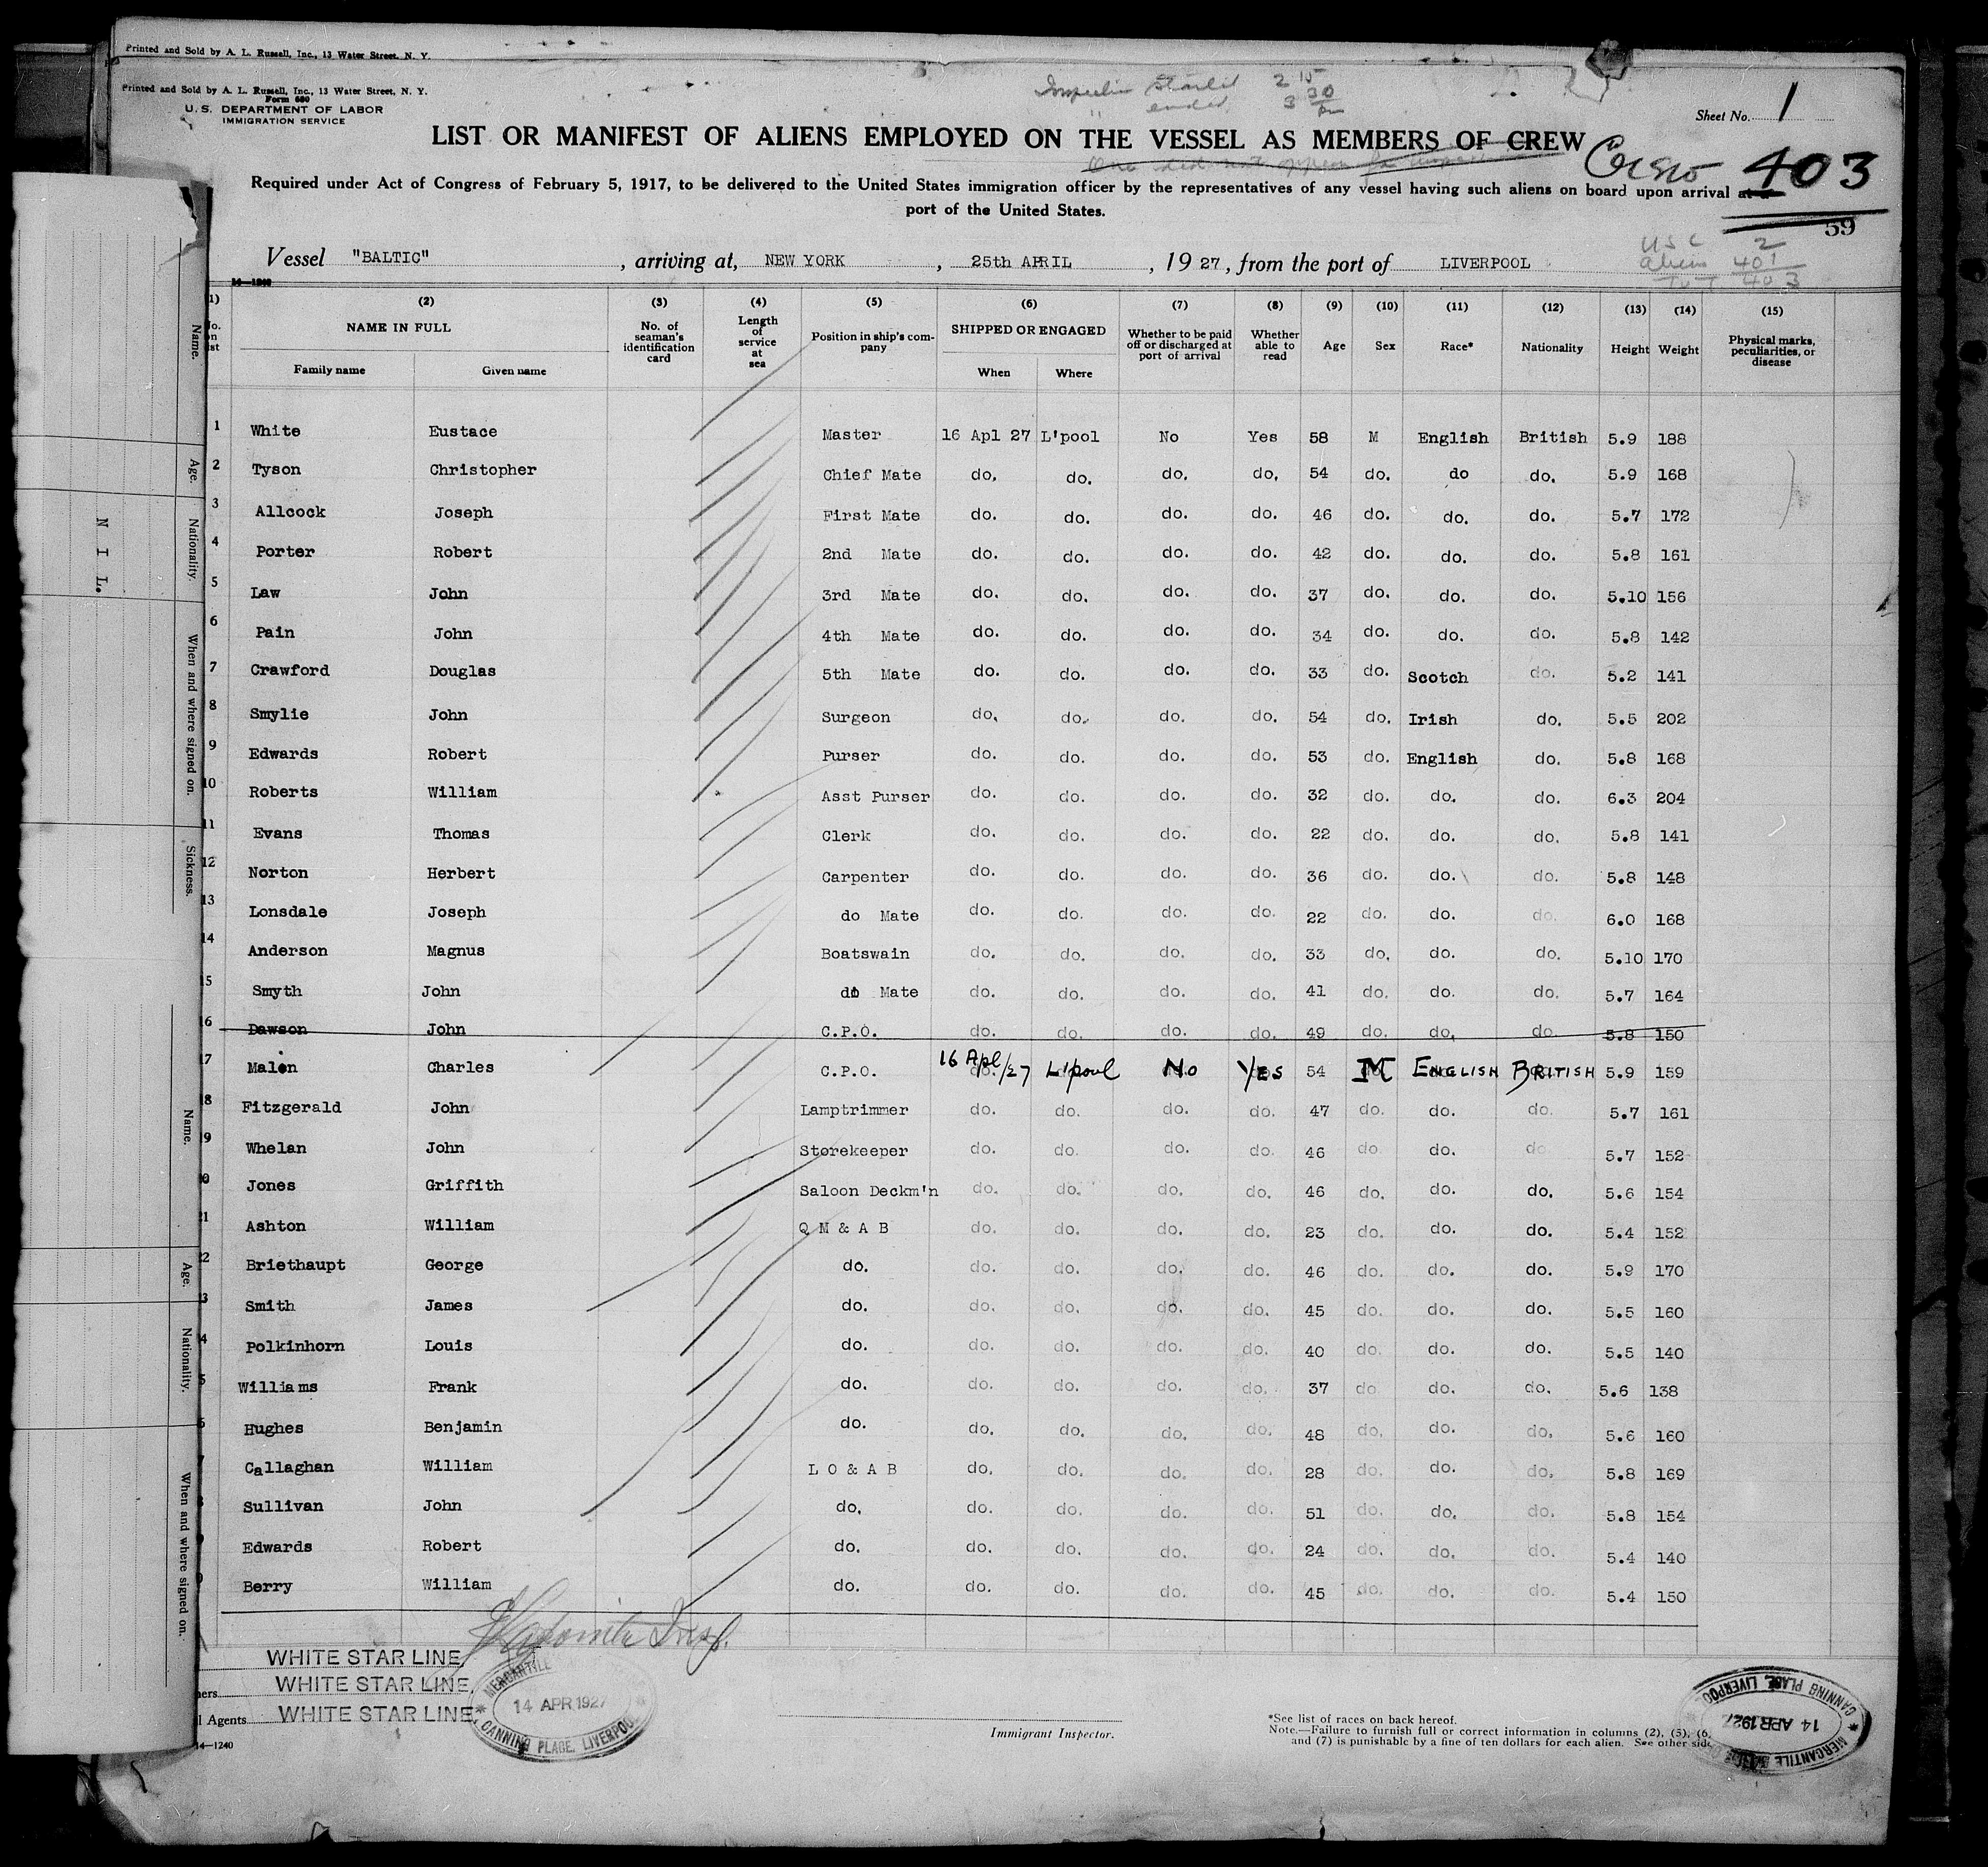 Printed and Sold by A. L. Russell, Inc., 13 Water Street, N. Y.
Printed and Sold by A. L. Russell, Inc., 13 Water Street, N. Y.
Form 680
U. S. DEPARTMENT OF LABOR
IMMIGRATION SERVICE
Inspection Started 2 15
" ended 3 30 pm
Sheet No. 1
LIST OR MANIFEST OF ALIENS EMPLOYED ON THE VESSEL AS MEMBERS OF CREW
Crew 403
Required under Act of Congress of February 5, 1917, to be delivered to the United States immigration officer by the representatives of any vessel having such aliens on board upon arrival at a
port of the United States.
59
U S C 2
Aliens 401
Tot 403
Vessel "BALTIC", arriving at, NEW YORK, 25th APRIL, 1927, from the port of LIVERPOOL
14—1240
(1) (2) (3) (4) (5) (6) (7) (8) (9) (10) (11) (12) (13) (14) (15)
No. on list NAME IN FULL Family name Given name No. of seaman's identification card Length of service at sea Position in ship's company SHIPPED OR ENGAGED When Where Whether to be paid off or discharged at port of arrival Whether able to read Age Sex Race* Nationality Height Weight Physical marks, peculiarities, or disease
1 White Eustace Master 16 Apl 27 L'pool No Yes 58 M English British 5.9 188
2 Tyson Christopher Chief Mate do. do. do. do. 54 do. do do. 5.9 168
3 Allcock Joseph First Mate do. do. do. do. 46 do. do. do. 5.7 172
4 Porter Robert 2nd Mate do. do. do. do. 42 do. do. do. 5.8 161
5 Law John 3rd Mate do. do. do. do. 37 do. do. do. 5.10 156
6 Pain John 4th Mate do. do. do. do. 34 do. do. do. 5.8 142
7 Crawford Douglas 5th Mate do. do. do. do. 33 do. Scotch do. 5.2 141
8 Smylie John Surgeon do. do. do. do. 54 do. Irish do. 5.5 202
9 Edwards Robert Purser do. do. do. do. 53 do. English do. 5.8 168
10 Roberts William Asst Purser do. do. do. do. 32 do. do. do. 6.3 204
11 Evans Thomas Clerk do. do. do. do. 22 do. do. do. 5.8 141
12 Norton Herbert Carpenter do. do. do. do. 36 do. do. do. 5.8 148
13 Lonsdale Joseph do Mate do. do. do. do. 22 do. do. do. 6.0 168
14 Anderson Magnus Boatswain do. do. do. do. 33 do. do. do. 5.10 170
15 Smyth John do Mate do. do. do. do. 41 do. do. do. 5.7 164
16 Dawson John C.P.O. do. do. do. do. 49 do. do. do. 5.8 150
7 Malon Charles C.P.O. 16 Apl/27 L'pool No YES 54 M ENGLISH BRITISH 5.9 159
8 Fitzgerald John Lamptrimmer do. do. do. do. 47 do. do. do. 5.7 161
9 Whelan John Storekeeper do. do. do. do. 46 do do. do 5.7 152
0 Jones Griffith Saloon Deckm'n do. do. do. do. 46 do. do. do. 5.6 154
21 Ashton William Q M & A B do. do. do. do. 23 do. do. do. 5.4 152
2 Briethaupt George do. do. do. do. do. 46 do. do. do. 5.9 170
3 Smith James do. do. do. do. do. 45 do. do. do. 5.5 160
4 Polkinhorn Louis do. do. do. do. do. 40 do. do. do. 5.5 140
5 Williams Frank do. do. do. do. do. 37 do do. do. 5.6 138
6 Hughes Benjamin do. do. do. do. do. 48 do. do. do. 5.6 160
7 Callaghan William L O & A B do. do. do. do. 28 do. do. do. 5.8 169
8 Sullivan John do. do. do. do. do. 51 do. do. do. 5.8 154
9 Edwards Robert do. do. do. do. do. 24 do. do. do. 5.4 140
Berry William do. do. do. do. do. 45 do. do. do. 5.4 150
WHITE STAR LINE,
WHITE STAR LINE,
WHITE STAR LINE,
ners
l Agents
14—1240
MERCANTILE
14 APR 1927
CANNING PLACE, LIVERPOOL
Immigrant Inspector.
*See list of races on back hereof.
Note.—Failure to furnish full or correct information in columns (2), (5), (6
and (7) is punishable by a fine of ten dollars for each alien. See other side
MERCANTILE
14 APR 1927
CANNING PLACE, LIVERPOOL
Name.
Age.
Nationality.
N I L.
When and where signed on.
Sickness.
Name.
Age.
Nationality.
When and where signed on.